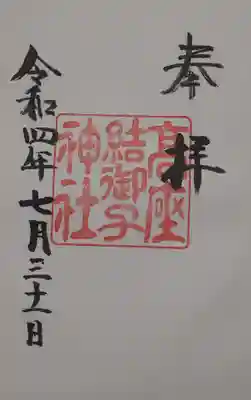 奉拝
高座
結御子
神社
令和四年七月三十一日